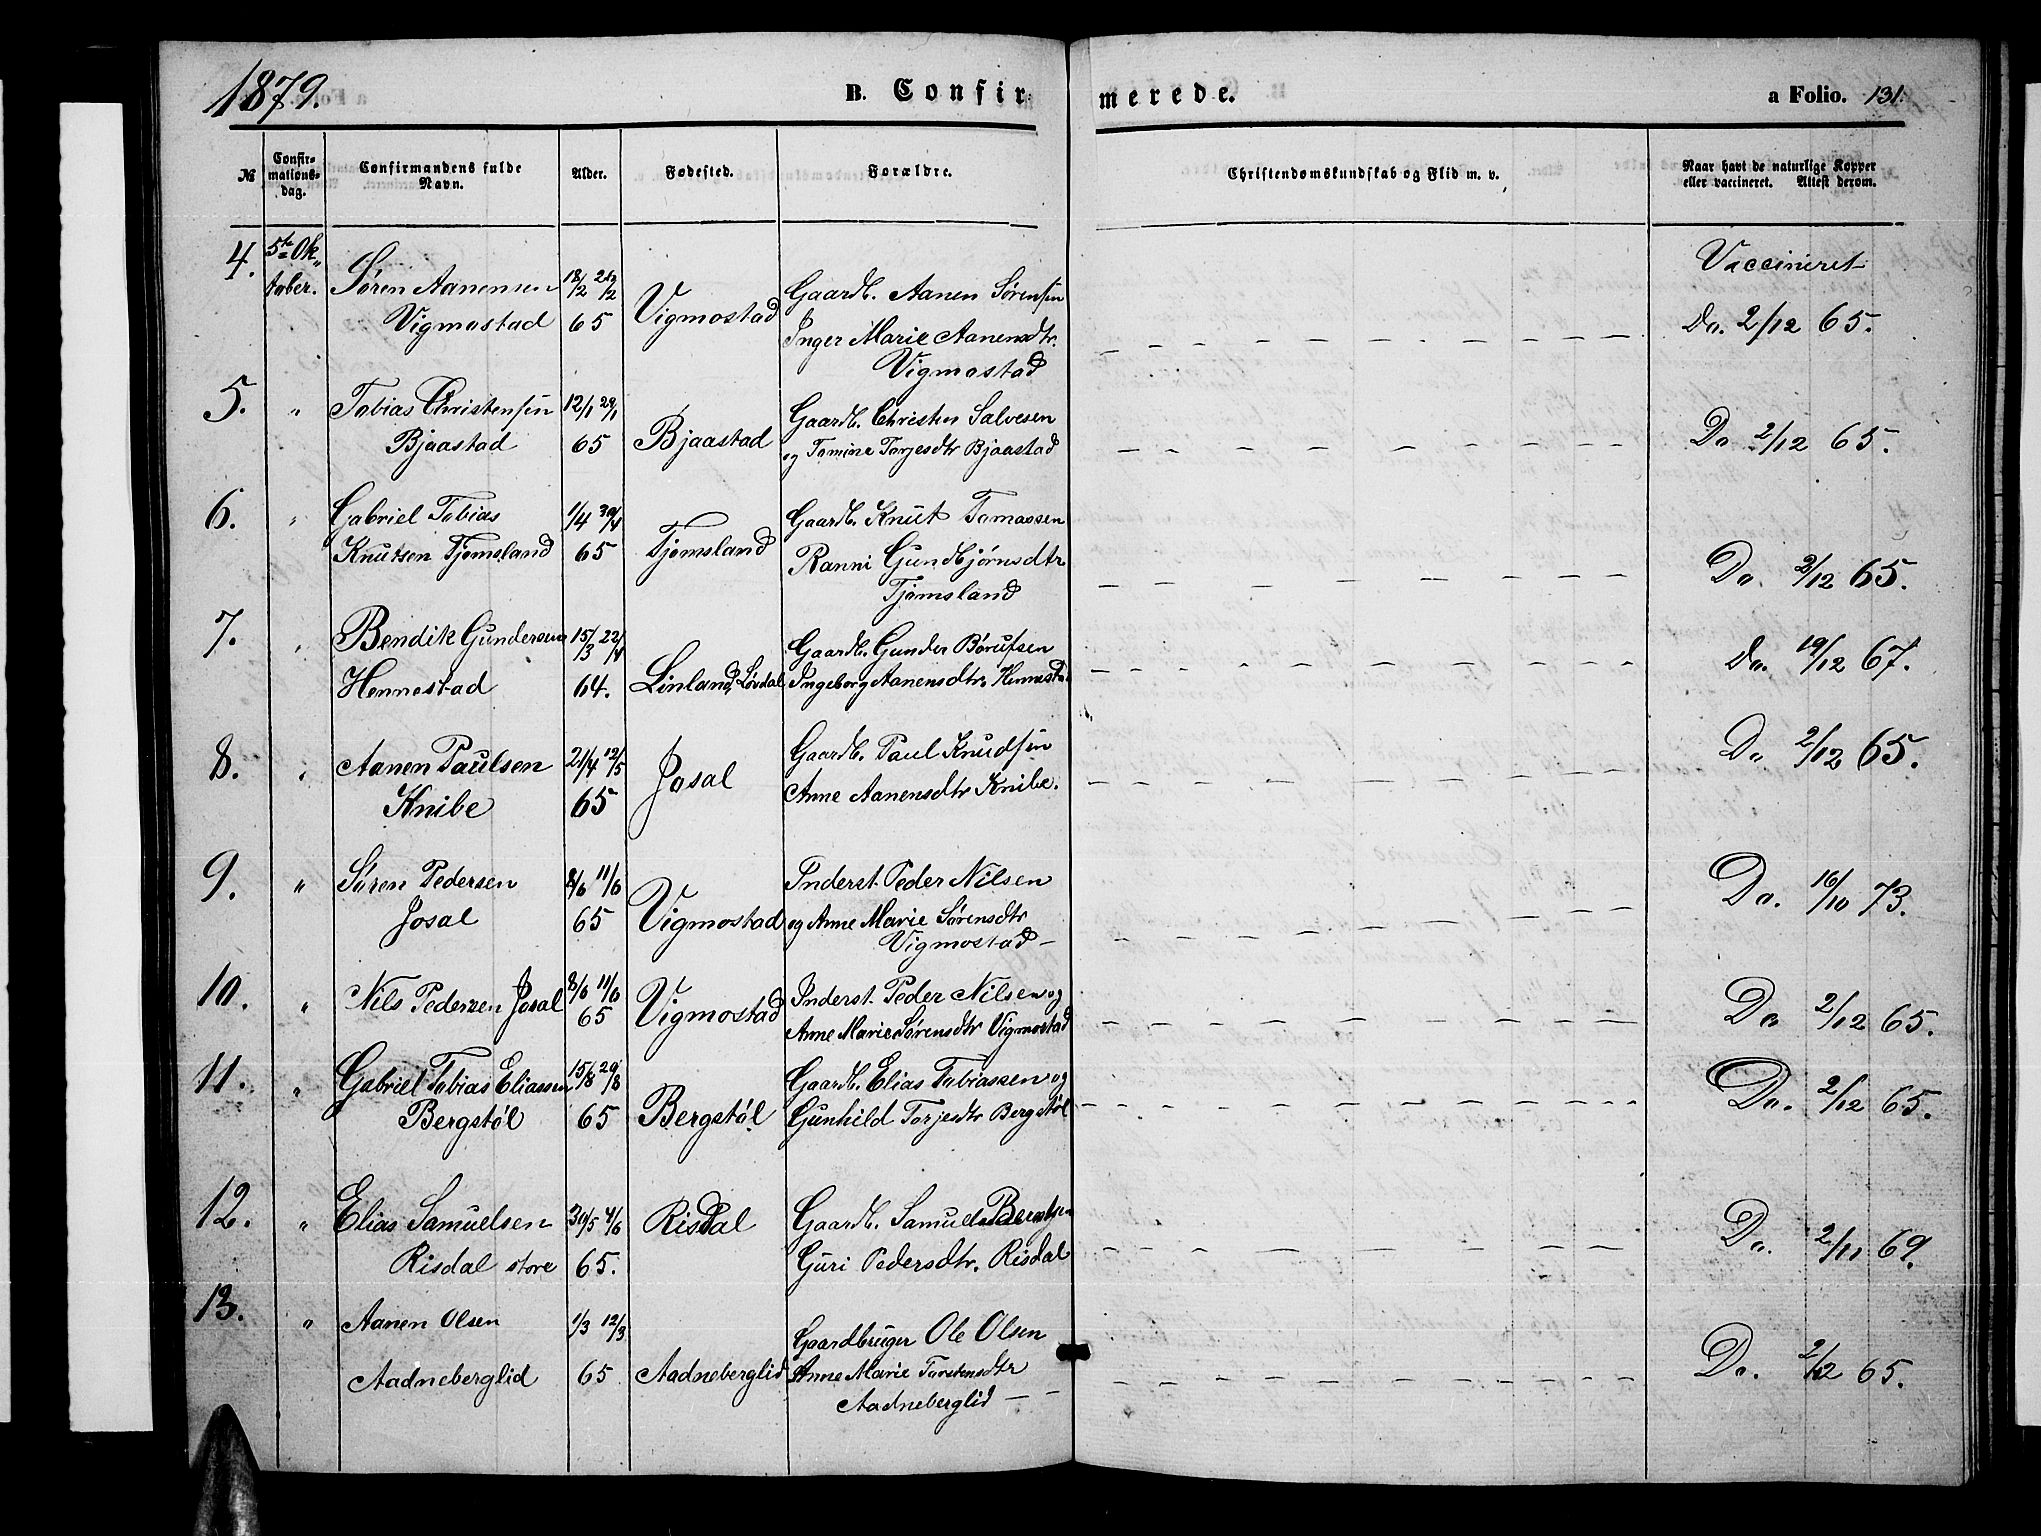 1879.
B. Confir
merede.
a Folio. 131.
№
Confir-
mations-
dag.
Confirmandens fulde
Navn.
Alder.
Fødested.
Forældre.
Christendomskundskab og Flid m. v.
Naar havt de naturlige Kopper
eller vaccineret. Attest derom.
4. 5te Ok-
tober.
Søren Aanensen
Vigmostad
18/2 26/2
65
Vigmostad
Gaardb. Aanen Sørensen
Inger Marie Aanensdtr.
Vigmostad
Vaccineret
Do. 2/12 65.
5. "
Tobias Christensen
Bjaastad
12/1 29/1
65
Bjaastad
Gaardb. Christen Salvesen
og Tomine Torjesdtr Bjaastad
Do 2/12 65.
6. "
Gabriel Tobias
Knutsen Tjomsland
1/4 30/4
65
Tjomsland
Gaardb. Knut Tomassen
Ranni Gundbjørnsdtr
Tjomsland
Do. 2/12 65.
7. "
Bendik Gundersen
Hennestad
15/3 22/4
64.
Linland, Løvdal
Gaardb. Gunder Børufsen
Ingeborg Aanensdtr. Hennestad
Do. 19/12 67.
8. "
Aanen Paulsen
Knibe
21/4 12/5
65
Josal
Gaardb. Paul Knudsen
Anne Aanensdtr Knibe.
Do 2/12 65.
9. "
Søren Pedersen
Josal
8/6 11/6
65
Vigmostad
Inderst. Peder Nilsen
og Anne Marie Sørensdtr
Vigmostad
Do. 16/10 73.
10. "
Nils Pedersen Josal
8/6 11/6
65
Vigmostad
Inderst. Peder Nilsen og
Anne Marie Sørensdtr Vigmostad
Do 2/12 65.
11. "
Gabriel Tobias Eliassen
Bergstøl
15/8 29/8
65
Bergstøl
Gaardb. Elias Tobiassen og
Gunhild Torjesdtr Bergstøl
Do. 2/12 65.
12. "
Elias Samuelsen
Risdal store
30/5 4/6
65.
Risdal
Gaardb. Samuel Berntsen
Guri Pedersdtr. Risdal
Do. 2/11 69.
13. "
Aanen Olsen
Aadneberglid
1/3 12/3
65
Aadneberglid
Gaardbruger Ole Olsen
Anne Marie Torstensdtr
Aadneberglid
Do. 2/12 65.